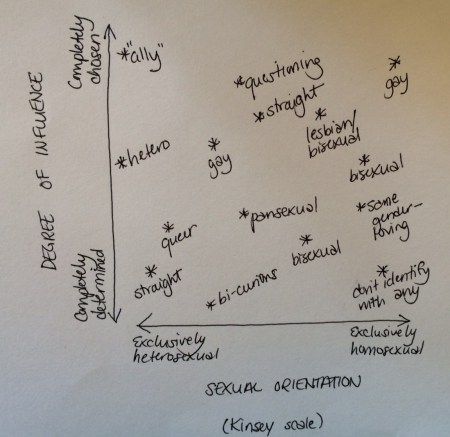 Completely
chosen
*"ally"
*questioning
*
gay
*straight
*
lesbian/
bisexual
*hetero
*
gay
*
bisexual
DEGREE OF INFLUENCE
*pansexual
*some
gender-
loving
*
queer
*
bisexual
Completely
determined
*
straight
*bi-curious
*
don't identify
with any
Exclusively
heterosexual
Exclusively
homosexual
SEXUAL ORIENTATION
(Kinsey scale)